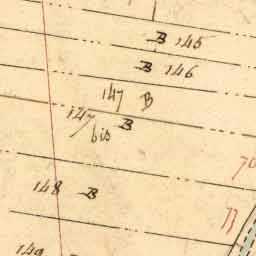 B 145
B 146
147 B
147 bis B
148 B
149